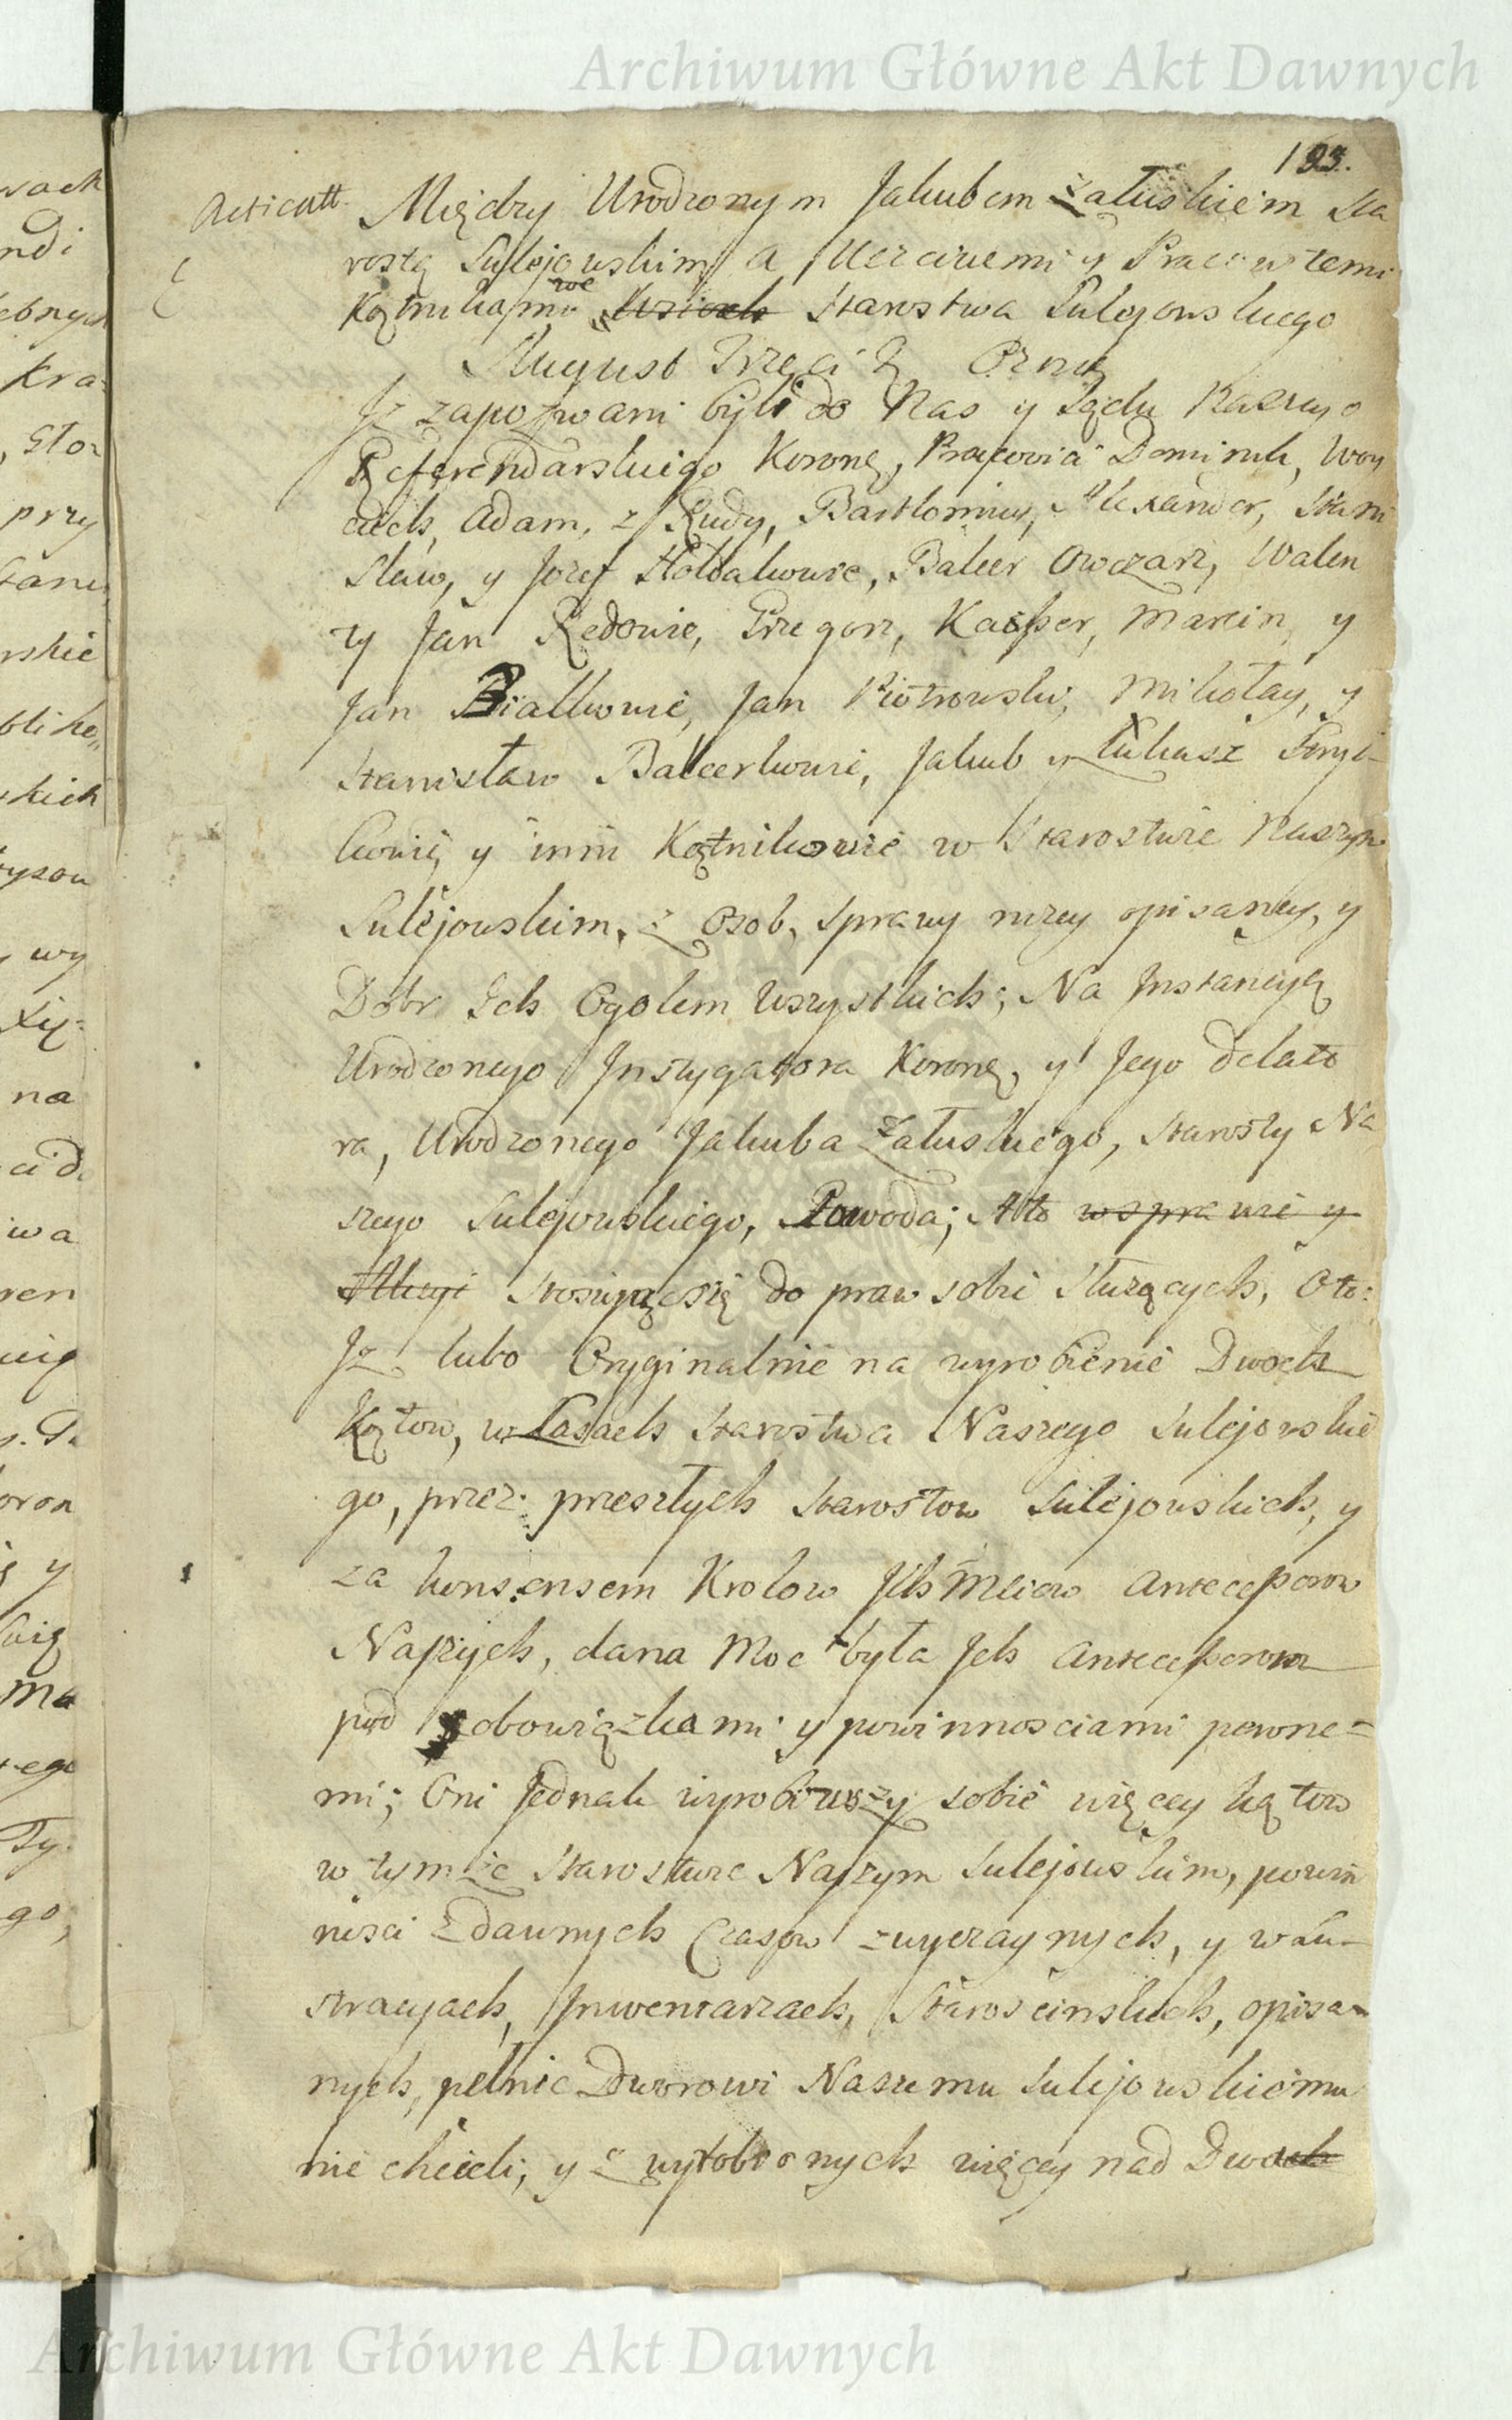 Archiwum Główne Akt Dawnych
193.
Acticatt. Między Urodzonym Jakubem Załuskiem Sta
rostą Sulejowskim a Uczciwemi y Pracowitemi
Kątnikami we Starostwa Sulejowskiego
August Trzeci Orne
Jz zapozwani byli do Nas y Sądu Naszego
Referendarskiego Koronę, Pracowici Dominik, Woy
ciech, Adam, z Rudy, Bartłomiey, Alexander, Stani
sław, y Jozef Hołdakowie, Balcer Owczarz, Walen
ty Jan Redowie, Grzegorz, Kasper, Marcin, y
Jan Białkowie, Jan Piotrowski, Mikołay, y
Stanisław Balcerkowie, Jakub y Łukasz Stryi-
kowie y inni Kątnikowie w Starostwie Naszym
Sulejowskim, z Osob, sprawy niżey opisaney, y
Dobr Ich Ogolem Wszystkich; Na Instancyą
Urodzonego Instygatora Koronę, y Jego delato
ra, Urodzonego Jakuba Załuskiego, Starosty Na
szego Sulejowskiego, Powoda; Ato w sprawie y
Akcyi Stosuiącesię do praw sobie Służących, Oto:
Jz lubo Oryginalnie na wyrobienie Dwoch
Kątow, w Lasach Starostwa Naszego Sulejowskie
go, przez przeszłych Starostow Sulejowskich, y
za konsensem Krolow Jch Mciow Antecessorow
Naszych, dana Moc była Jch Antecessorom
pod obowiązkami y powinnosciami pewne=
mi; Oni Jednak wyrobiwszy sobie więcey kątow
w tymże Starostwie Naszym Sulejowskim, powin
nosci z dawnych Czasow zwyczaynych, y w Lu-
stracyach, Inwentarzach, Starościnskich, opisa-
nych, pełnic Dworowi Naszemu Sulejowskiemu
nie chcieli; y z wyrobionych więcey nad Dwoch
Archiwum Główne Akt Dawnych